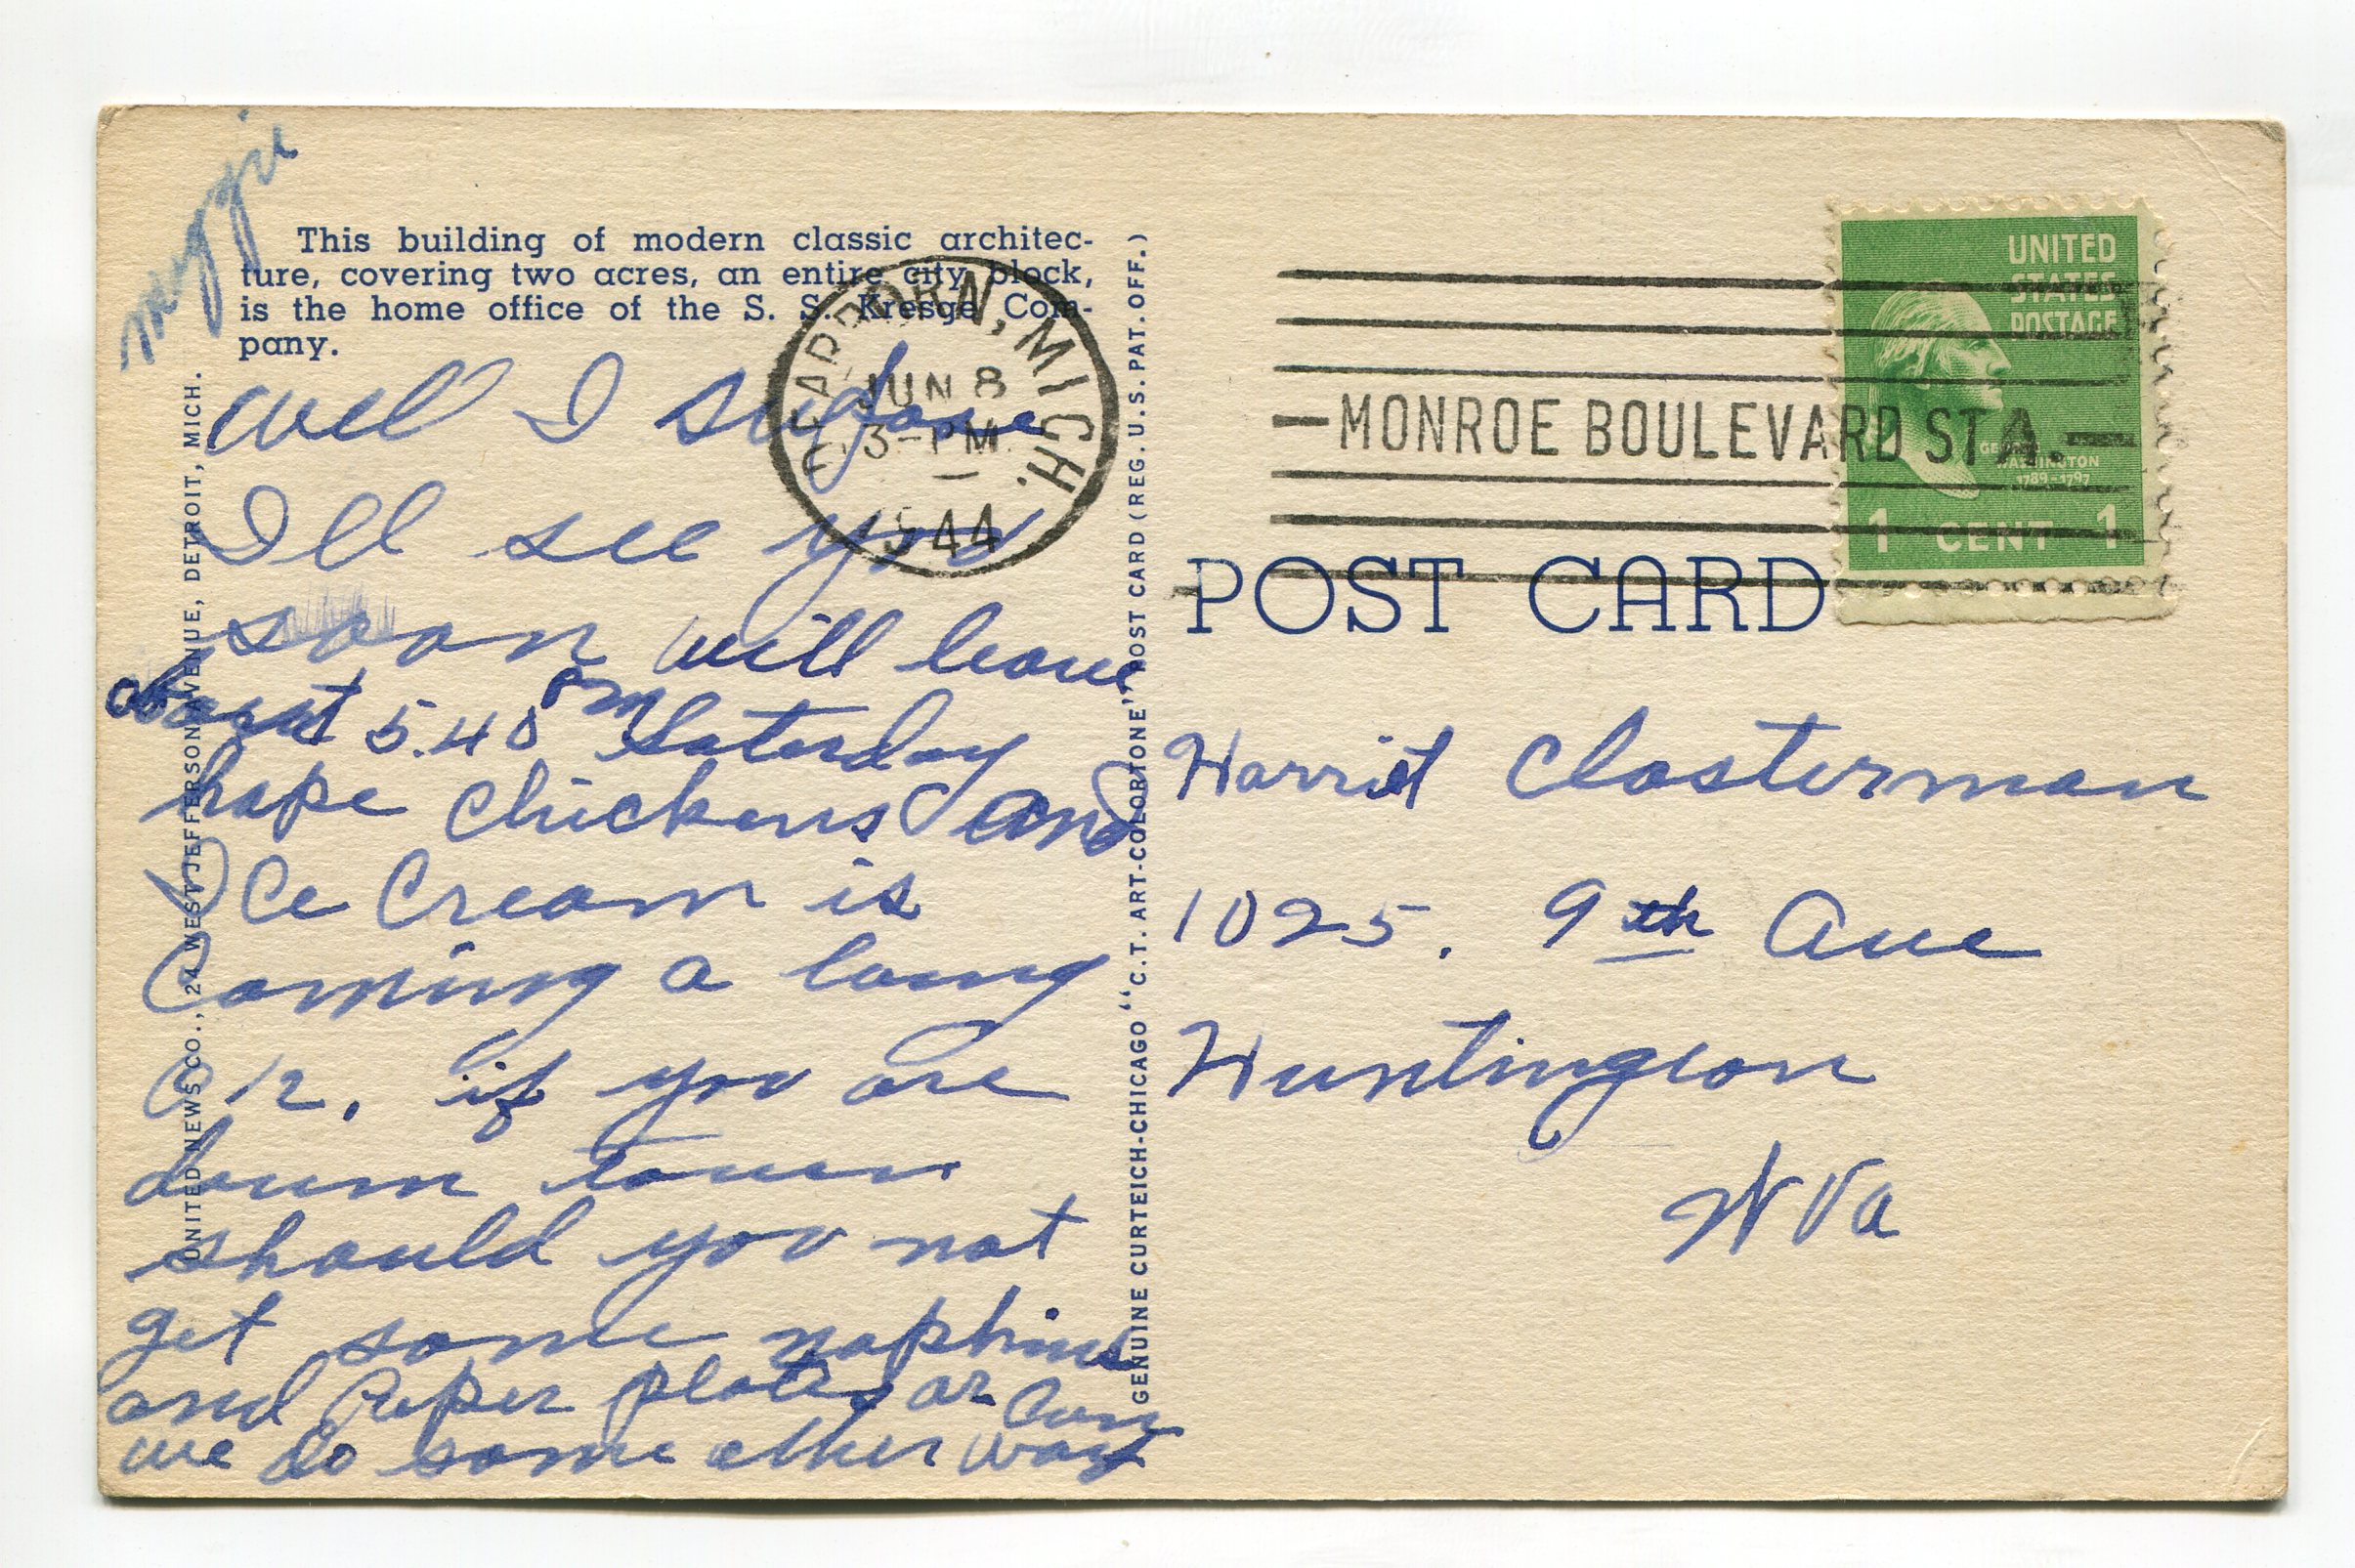 Maggie
This building of modern classic architec-
ture, covering two acres, an entire city block,
is the home office of the S. S. Kresge Com-
pany.
Well I supose
Ill see you
soon will leave
about 5.40 PM Saturday
hope chickens and
Ice Cream is
Coming a long
O.K. if you are
down town
should you not
get some napkins
and Paper plates or Can
we do some other way
UNITED NEWS CO., WEST JEFFERSON AVENUE, DETROIT, MICH.
GENUINE CURTEICH-CHICAGO "C.T. ART-COLORTONE" POST CARD (REG. U.S. PAT. OFF.)
DEARBORN, MICH.
JUN 8
3-PM
1944
MONROE BOULEVARD STA.
UNITED
STATES
POSTAGE
GEORGE
WASHINGTON
1789-1797
1 CENT 1
POST CARD
Harriet Closterman
1025. 9th Ave
Huntington
W Va